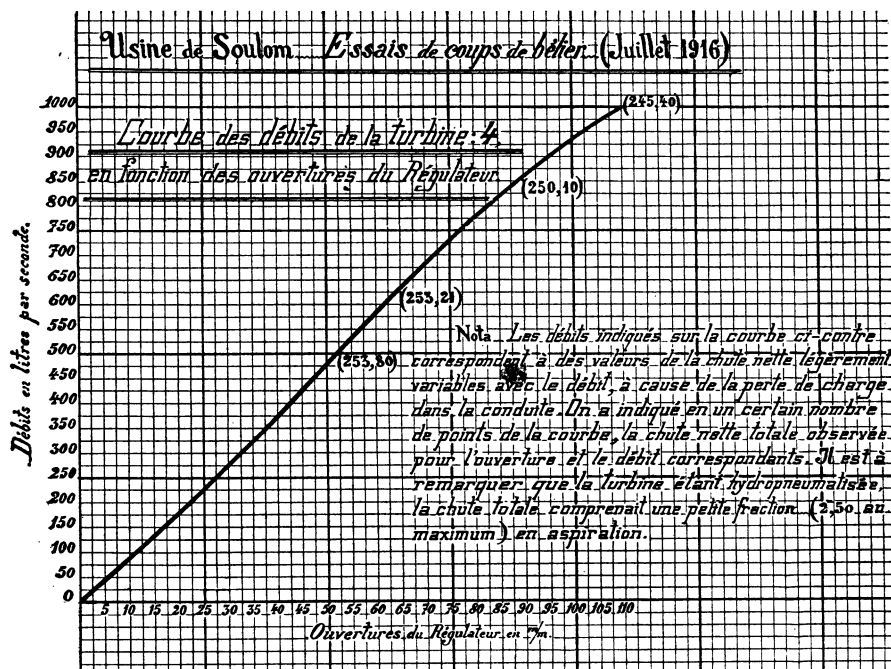 Usine de Soulom Essais de coups de bélier (Juillet 1916)
Courbe des débits de la turbine: 4.
en fonction des ouvertures du Régulateur.
Débits en litres par seconde.
1000
950
900
850
800
750
700
650
600
550
500
450
400
350
300
250
200
150
100
50
0
(245,40)
(250,10)
(253,21)
(253,80)
Nota Les débits indiqués sur la courbe ci-contre
correspondent à des valeurs de la chute nette légèrement
variables avec le débit, à cause de la perte de charge
dans la conduite. On a indiqué en un certain nombre
de points de la courbe, la chute nette totale observée
pour l'ouverture et le débit correspondants. Il est à
remarquer que la turbine étant hydropneumatisée,
la chute totale comprenait une petite fraction (2,50 au
maximum) en aspiration.
5 10 15 20 25 30 35 40 45 50 55 60 65 70 75 80 85 90 95 100 105 110
Ouvertures du Régulateur en m/m.